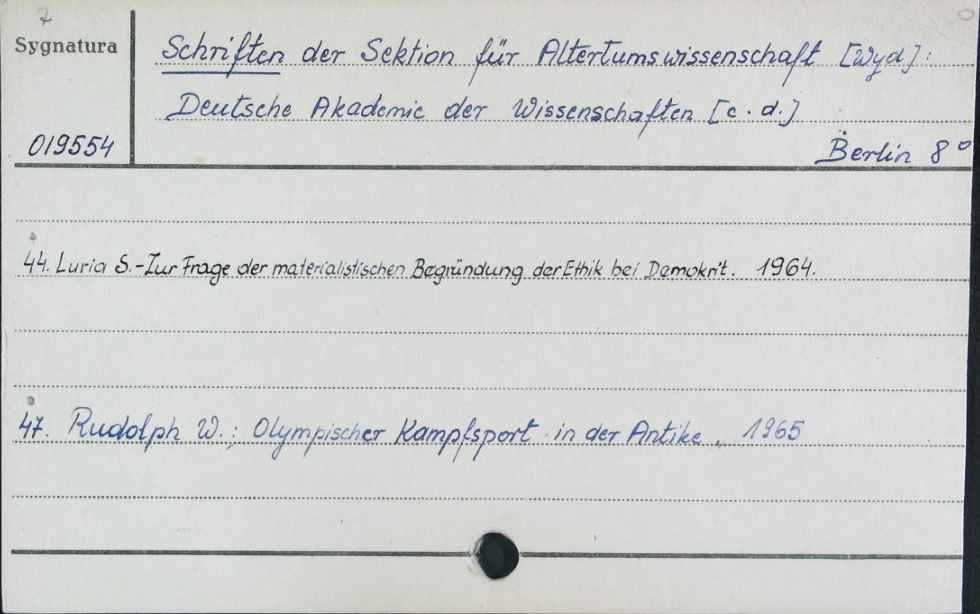 7
Sygnatura
Schriften der Sektion für Altertumswissenschaft [Wyd]:
Deutsche Akademie der Wissenschaften [c.d.]
019554
Berlin 8°
44. Luria S.-Zur Frage der materialistischen Begründung der Ethik bei Demokrit. 1964.
47. Rudolph W.; Olympischer Kampfsport in der Antike, 1965